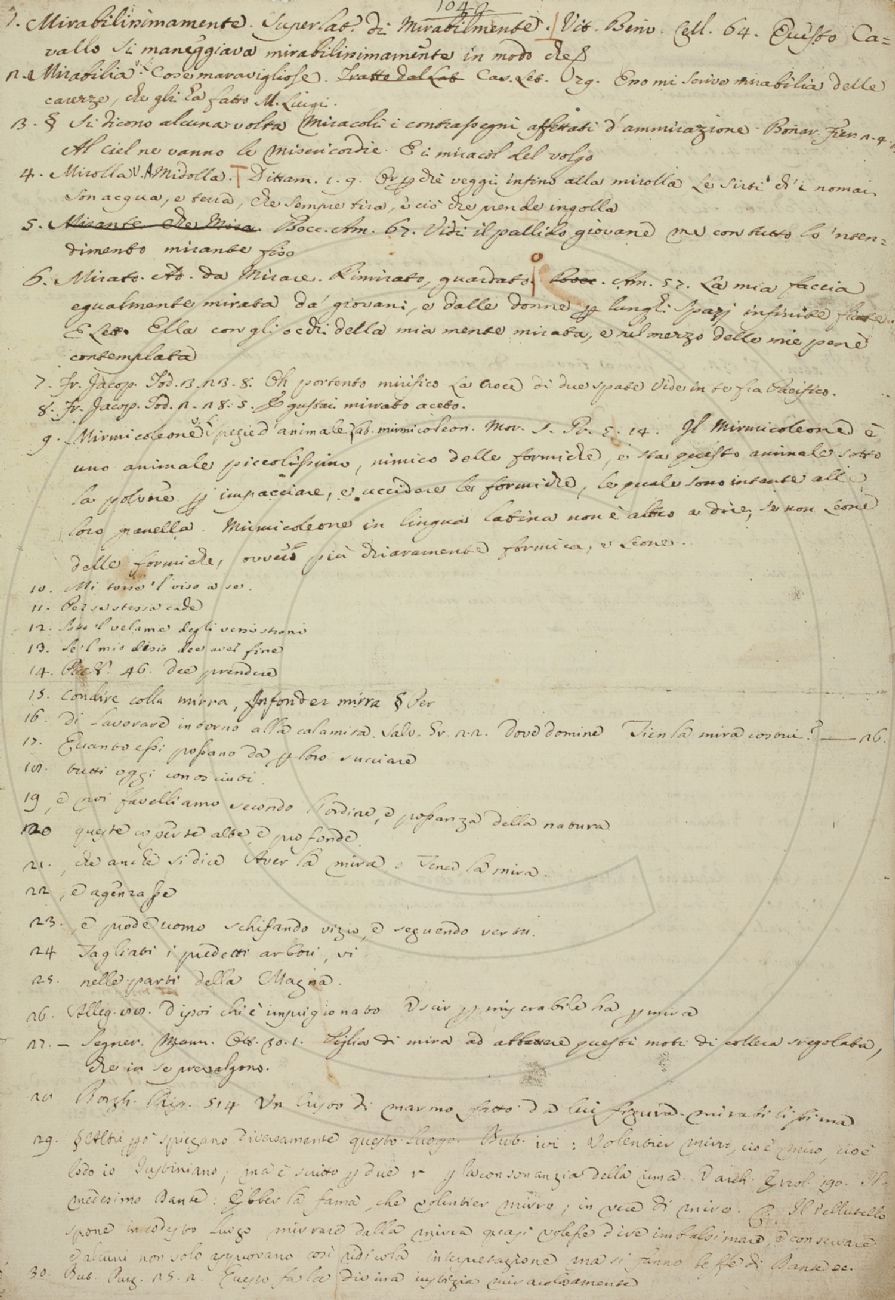 1044
1. Mirabilissimamente. Superlat. di Mirabilmente. Vit. Benv. Cell. 64. Questo Ca=
vallo si maneggiava mirabilissimamente in modo che
2. Mirabilia Cose maravigliose. Tratto dal Lat. Car. Lett. 29. Ero mi scrive mirabilia delle
carezze, che gli ha fatto M. Luigi.
3. § Si dicono alcuna volta Miracoli i contrassegni affettati d'ammirazione. Bonar. Fier. 2. 4.
Al ciel ne vanno le misericordie. E i miracol del volgo
4. Mirolla V.A. Midolla. Dittam. 1. 9. veggi infino alla mirolla Le Sirti ch'i nomai
Son acqua, e terra, che sempre tira, e ciò che prende ingolla
5. Mirante. Che Mira. Bocc. Am. 67. Vidi il pallido giovane ma con tutto lo 'nten=
dimento mirante fiso
6. Mirato. Ad. da Mirare. Rimirato, guardato. Bocc. Am. 57. La mia faccia
egualmente mirata da' giovani, e dalle donne p lunghi spazj infinite fiate.
E Lett. Ella con gli occhi della mia mente mirata, e nel mezzo delle mie pene
contemplata
7. Fr. Jacop. Tod. 3. 23. 8. Oh portento mirifico La Croce di due spate Vide in te fra Pacifico.
8. Fr. Jacop. Tod. 2. 28. 5. gustai mirrato aceto.
9. Mirmicoleone spezie d'animale Lat. mirmicoleon. Mor. S. Gr. 5. 14. Il Mirmicoleone è
uno animale piccolissimo, nimico delle formiche, e sta questo animale sotto
la polvere p impacciare, e uccidere le formiche, le quale sono intente alle
loro granella. Mirmicoleone in lingua latina non è altro a dire, se non Leone
delle formiche, ovvero più chiaramente formica, e Leone.
10. Mi torse 'l viso a se.
11. Per se stessa cade
12. Sotto 'l velame degli versi strani
13. Se 'l mio disio dee aver fine
14. 46. Dee prendere
15. Condire colla mirra, Infonder mirra § Per
16. Di lavorare intorno alla calamita. Salv. Gr. 2. 2. Dove domine Tien la mira costui? —— 26.
17. Quanto essi possano da p loro succiare
18. tutti oggi conosciuti.
19, e noi favelliamo secondo l'ordine, e possanza della natura
20 queste coverte alte, e profonde
21. , che anche si dice Aver la mira o Tener la mira.
22 , e agenzasse
23. , e prode uomo schifando vizio, e seguendo vertù.
24 Tagliati i predetti arbori, vi
25. nelle parti della Magna.
26. Alleg. Dipoi chi è imprigionato Uscir p miserabile ha p mira
27. — Segner. Mann. Ott. 30. 1. Piglia di mira ad abbattere questi moti di collera sregolata,
che in se prevalgono.
28 Borgh. Rip. 514 Un Cristo di marmo fatto da lui figura mirabilissima
29. § Altri poi spiegano diversamente questo luogo. But. ivi: Volentier mirro, cioè miro, cioè
lodo io Justiniano; ma è scritto p due r p la consonanzia della rima. Varch. Ercol. 190. Il
medesimo Dante: Ebber la fama, che volentier mirro; in vece di miro. Il Vellutello
spone in codesto luogo mirrare dalla mirra quasi volesse dire imbalsimare, e conservare
E alcuni non solo approvano così ridicola interpretazione ma si fanno beffe di Dante ec.
30. But. Purg. 25. 2. Questo fa la divina iustizia miracolosamente